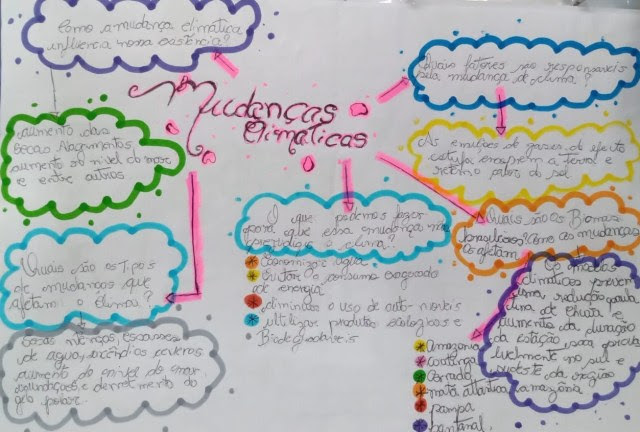 Como a mudança climática
influência nossa existência?
Mudanças
Climáticas
Quais fatores são responsáveis
pela mudança de clima?
aumento das
secas, alagamentos,
aumento do nível do mar
e entre outros
As emissões de gases do efeito
estufa encoprem a terra e
retêm o calor do sol
O que podemos fazer
para que essa mudança não
prejudique o clima?
Economizar água
Evitar o consumo exagerado
de energia
diminuir o uso de automóveis
utilizar produtos ecológicos e
Biodegradáveis
Quais são os Biomas
brasileiros? Como as mudanças
os afetam
Quais são os Tipos
de mudanças que
afetam o Clima?
secas intensas, escassez
de água, incêndios severos
aumento do nível do mar
inundações e derretimento do
gelo polar.
Os modelos
climáticos preveem
uma redução
da chuva e
aumento da duração
da estação seca,
no sul e
sudeste da região
amazônia
Amazônia
caatinga
Cerrado
mata atlântica
pampa
pantanal.